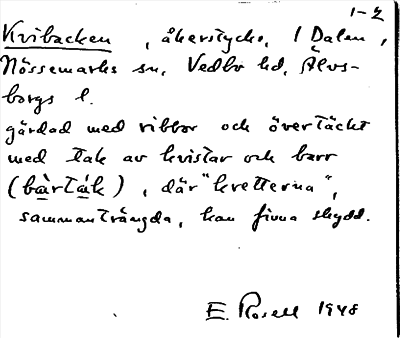 1-2
Kvibacken, åkerstycke, I Dalen,
Nössemarks sn, Vedbo hd, Älvs-
borgs l.
gärdad med ribbor och övertäckt
med tak av kvistar och barr
(bàrták), där "kretterna",
sammanträngda, kan finna skydd.
E. Rosell 1948